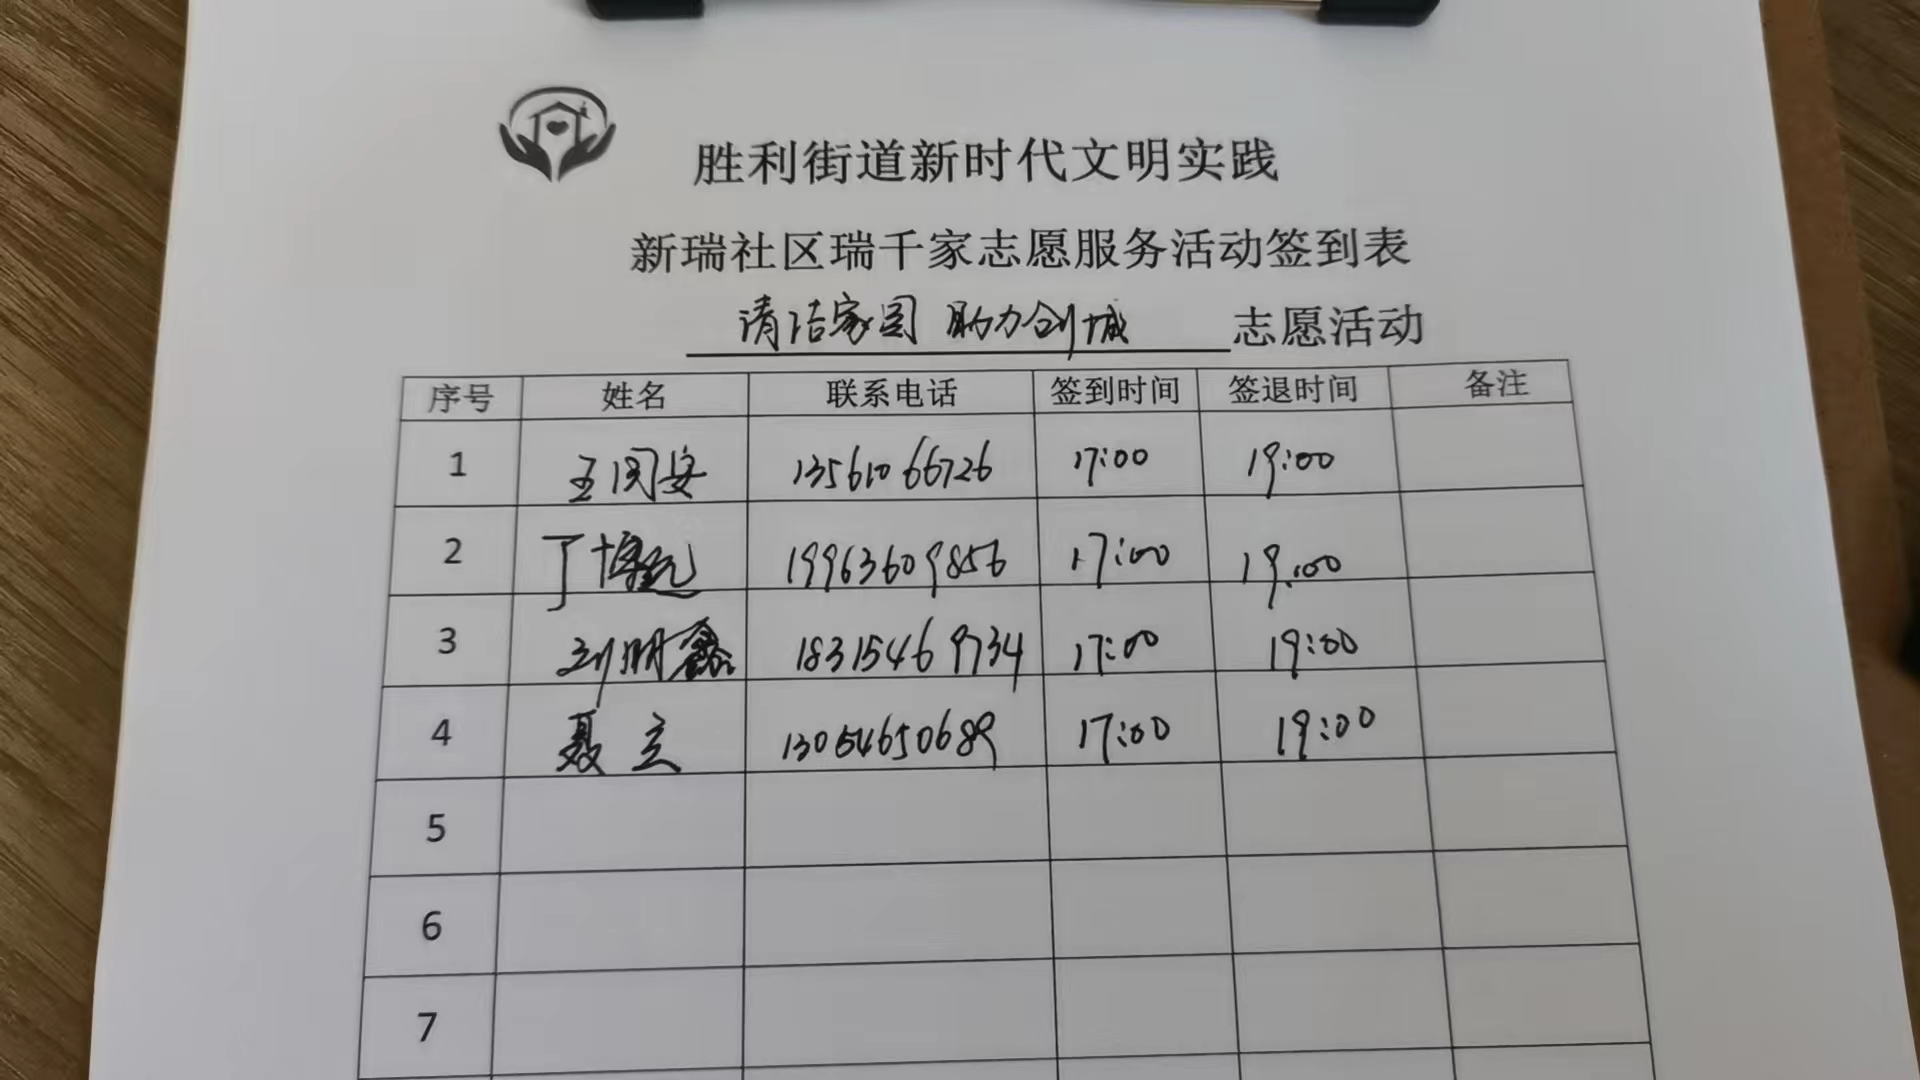 胜利街道新时代文明实践
新瑞社区瑞千家志愿服务活动签到表
清洁家园 助力创城 志愿活动
序号 姓名 联系电话 签到时间 签退时间 备注
1 王同安 13561066726 17:00 19:00
2 丁博远 19963609856 17:00 19:00
3 刘明鑫 18315469734 17:00 19:00
4 聂立 13054650689 17:00 19:00
5
6
7